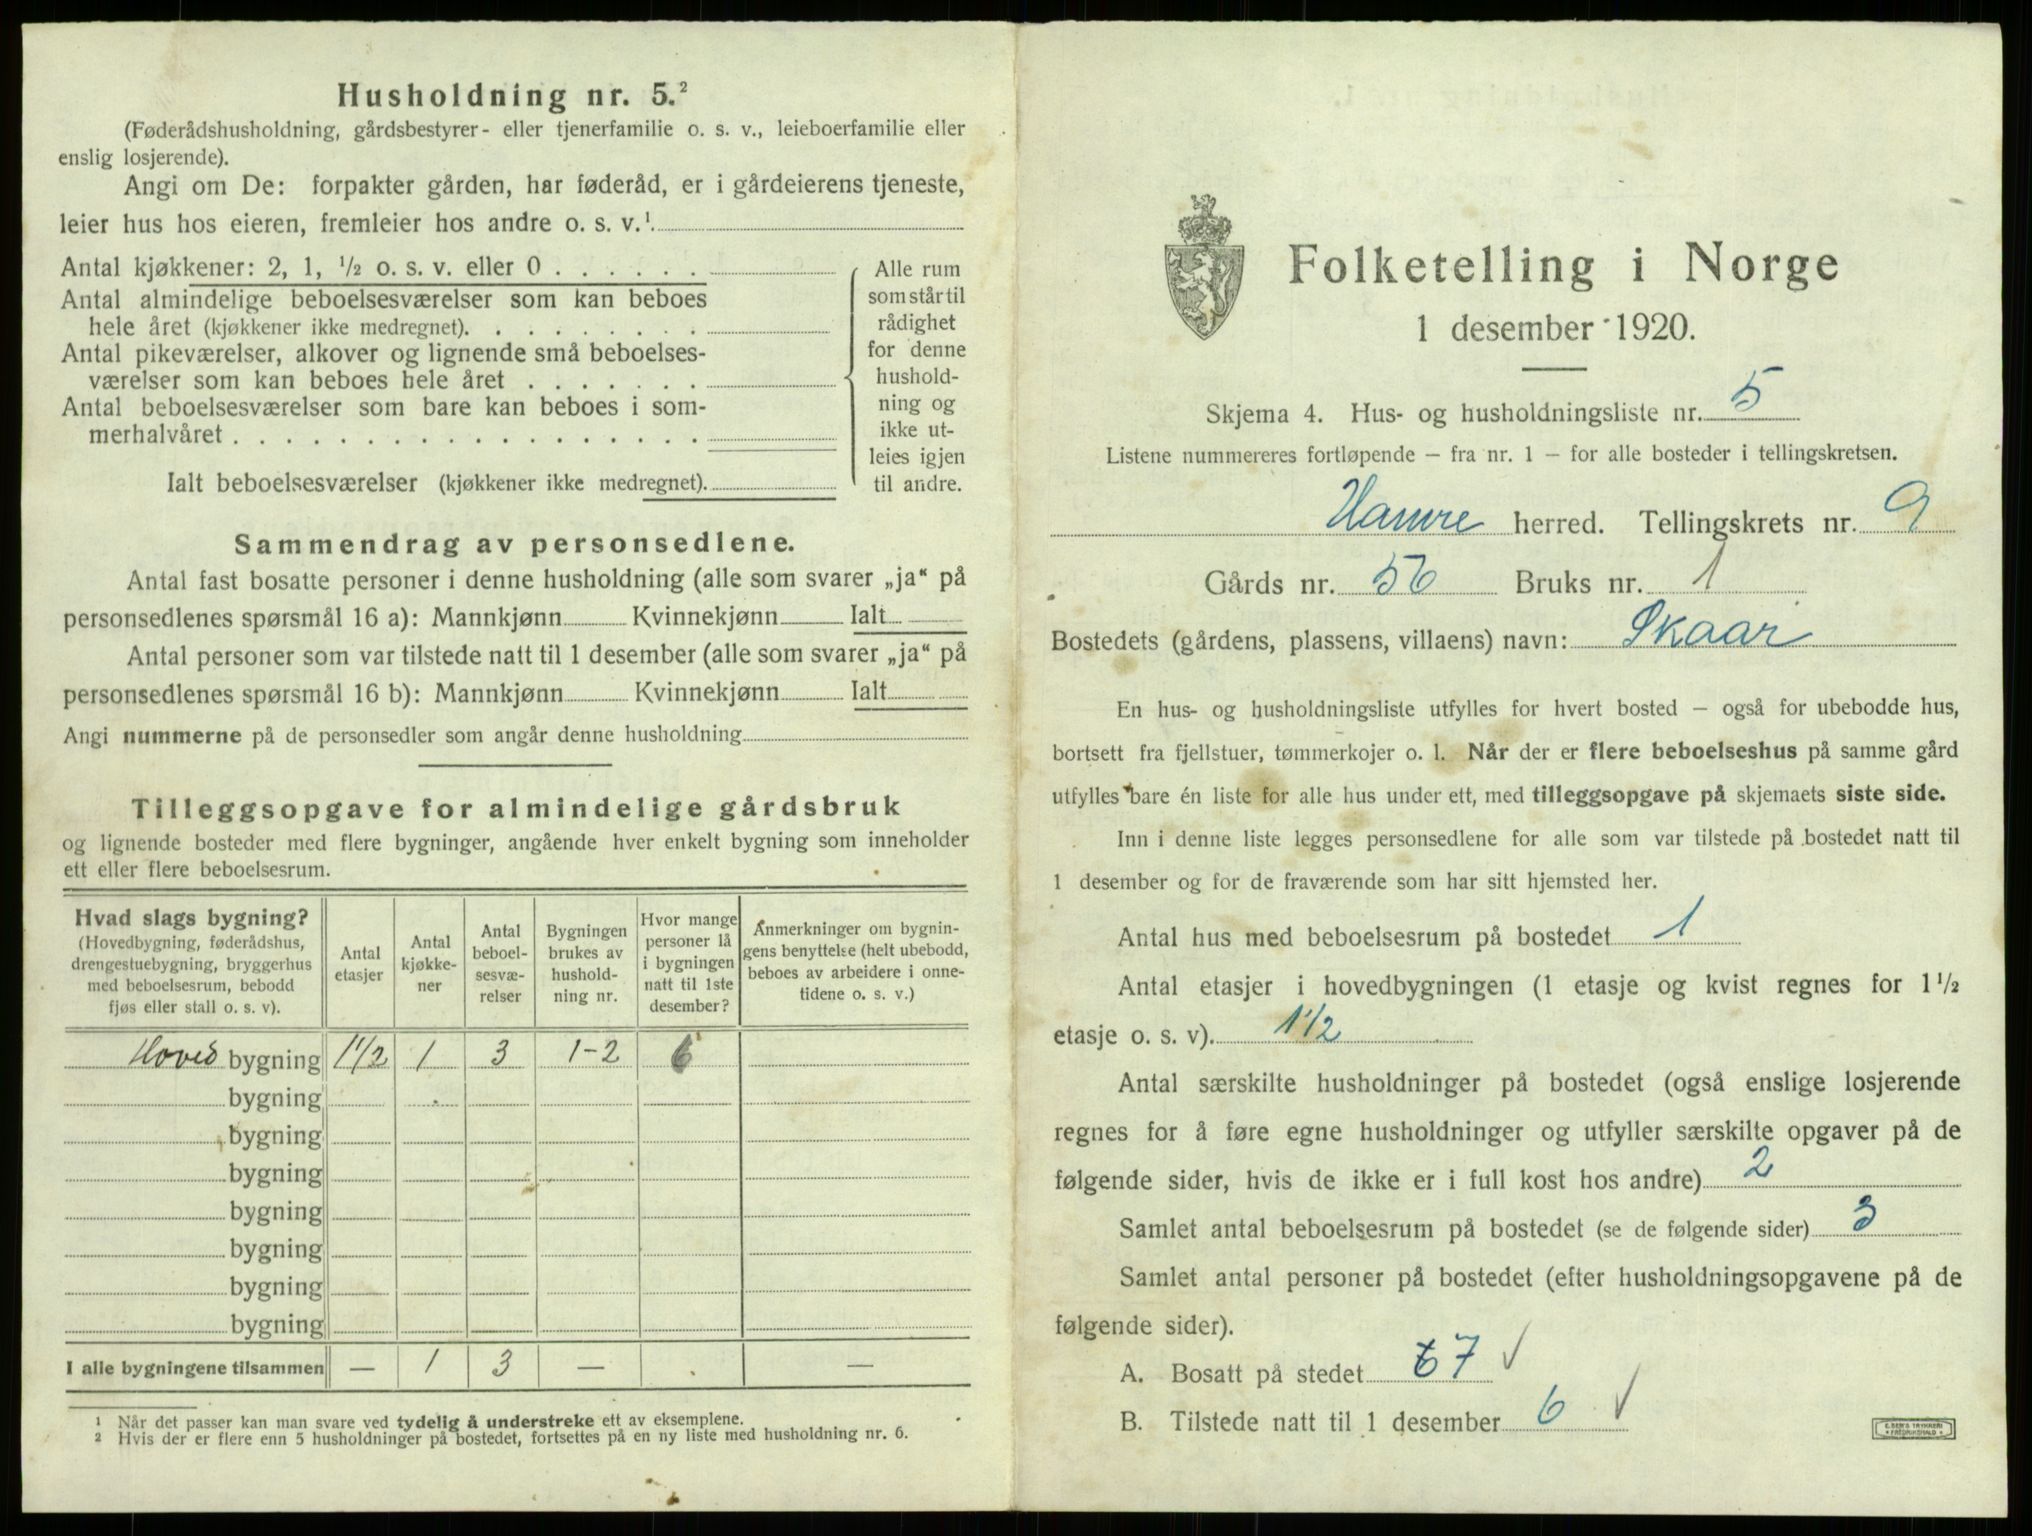 Husholdning nr. 5.²
(Føderådshusholdning, gårdsbestyrer- eller tjenerfamilie o. s. v., leieboerfamilie eller
enslig losjerende).
Angi om De: forpakter gården, har føderåd, er i gårdeierens tjeneste,
leier hus hos eieren, fremleier hos andre o. s. v.¹
Antal kjøkkener: 2, 1, ½ o. s. v. eller 0 . . . . . .
Antal almindelige beboelsesværelser som kan beboes
hele året (kjøkkener ikke medregnet). . . . . . . . .
Antal pikeværelser, alkover og lignende små beboelses-
værelser som kan beboes hele året . . . . . . .
Antal beboelsesværelser som bare kan beboes i som-
merhalvåret . . . . . . . . . . . . . . . . . .
Ialt beboelsesværelser (kjøkkener ikke medregnet).
Alle rum
som står til
rådighet
for denne
hushold-
ning og
ikke ut-
leies igjen
til andre.
Sammendrag av personsedlene.
Antal fast bosatte personer i denne husholdning (alle som svarer „ja“ på
personsedlenes spørsmål 16 a): Mannkjønn Kvinnekjønn Ialt
Antal personer som var tilstede natt til 1 desember (alle som svarer „ja“ på
personsedlenes spørsmål 16 b): Mannkjønn Kvinnekjønn Ialt
Angi nummerne på de personsedler som angår denne husholdning
Tilleggsopgave for almindelige gårdsbruk
og lignende bosteder med flere bygninger, angående hver enkelt bygning som inneholder
ett eller flere beboelsesrum.
Hvad slags bygning?
(Hovedbygning, føderådshus,
drengestuebygning, bryggerhus
med beboelsesrum, bebodd
fjøs eller stall o. s. v).
Antal
etasjer
Antal
kjøkke-
ner
Antal
beboel-
sesvæ-
relser
Bygningen
brukes av
hushold-
ning nr.
Hvor mange
personer lå
i bygningen
natt til 1ste
desember?
Anmerkninger om bygnin-
gens benyttelse (helt ubebodd,
beboes av arbeidere i onne-
tidene o. s. v.)
Hoved bygning 1½ 1 3 1-2 6
bygning
bygning
bygning
bygning
bygning
bygning
bygning
I alle bygningene tilsammen — 1 3 — —
¹ Når det passer kan man svare ved tydelig å understreke ett av eksemplene.
² Hvis der er flere enn 5 husholdninger på bostedet, fortsettes på en ny liste med husholdning nr. 6.
Folketelling i Norge
1 desember 1920.
Skjema 4. Hus- og husholdningsliste nr. 5
Listene nummereres fortløpende — fra nr. 1 — for alle bosteder i tellingskretsen.
Hamre herred. Tellingskrets nr. 9
Gårds nr. 56 Bruks nr. 1
Bostedets (gårdens, plassens, villaens) navn: Skaar
En hus- og husholdningsliste utfylles for hvert bosted — også for ubebodde hus,
bortsett fra fjellstuer, tømmerkojer o. l. Når der er flere beboelseshus på samme gård
utfylles bare én liste for alle hus under ett, med tilleggsopgave på skjemaets siste side.
Inn i denne liste legges personsedlene for alle som var tilstede på bostedet natt til
1 desember og for de fraværende som har sitt hjemsted her.
Antal hus med beboelsesrum på bostedet 1
Antal etasjer i hovedbygningen (1 etasje og kvist regnes for 1½
etasje o. s. v). 1½
Antal særskilte husholdninger på bostedet (også enslige losjerende
regnes for å føre egne husholdninger og utfyller særskilte opgaver på de
følgende sider, hvis de ikke er i full kost hos andre) 2
Samlet antal beboelsesrum på bostedet (se de følgende sider) 3
Samlet antal personer på bostedet (efter husholdningsopgavene på de
følgende sider).
A. Bosatt på stedet 67 √
B. Tilstede natt til 1 desember 6 √
E. SEM'S TRYKKERI
• FREDRIKSHALD •